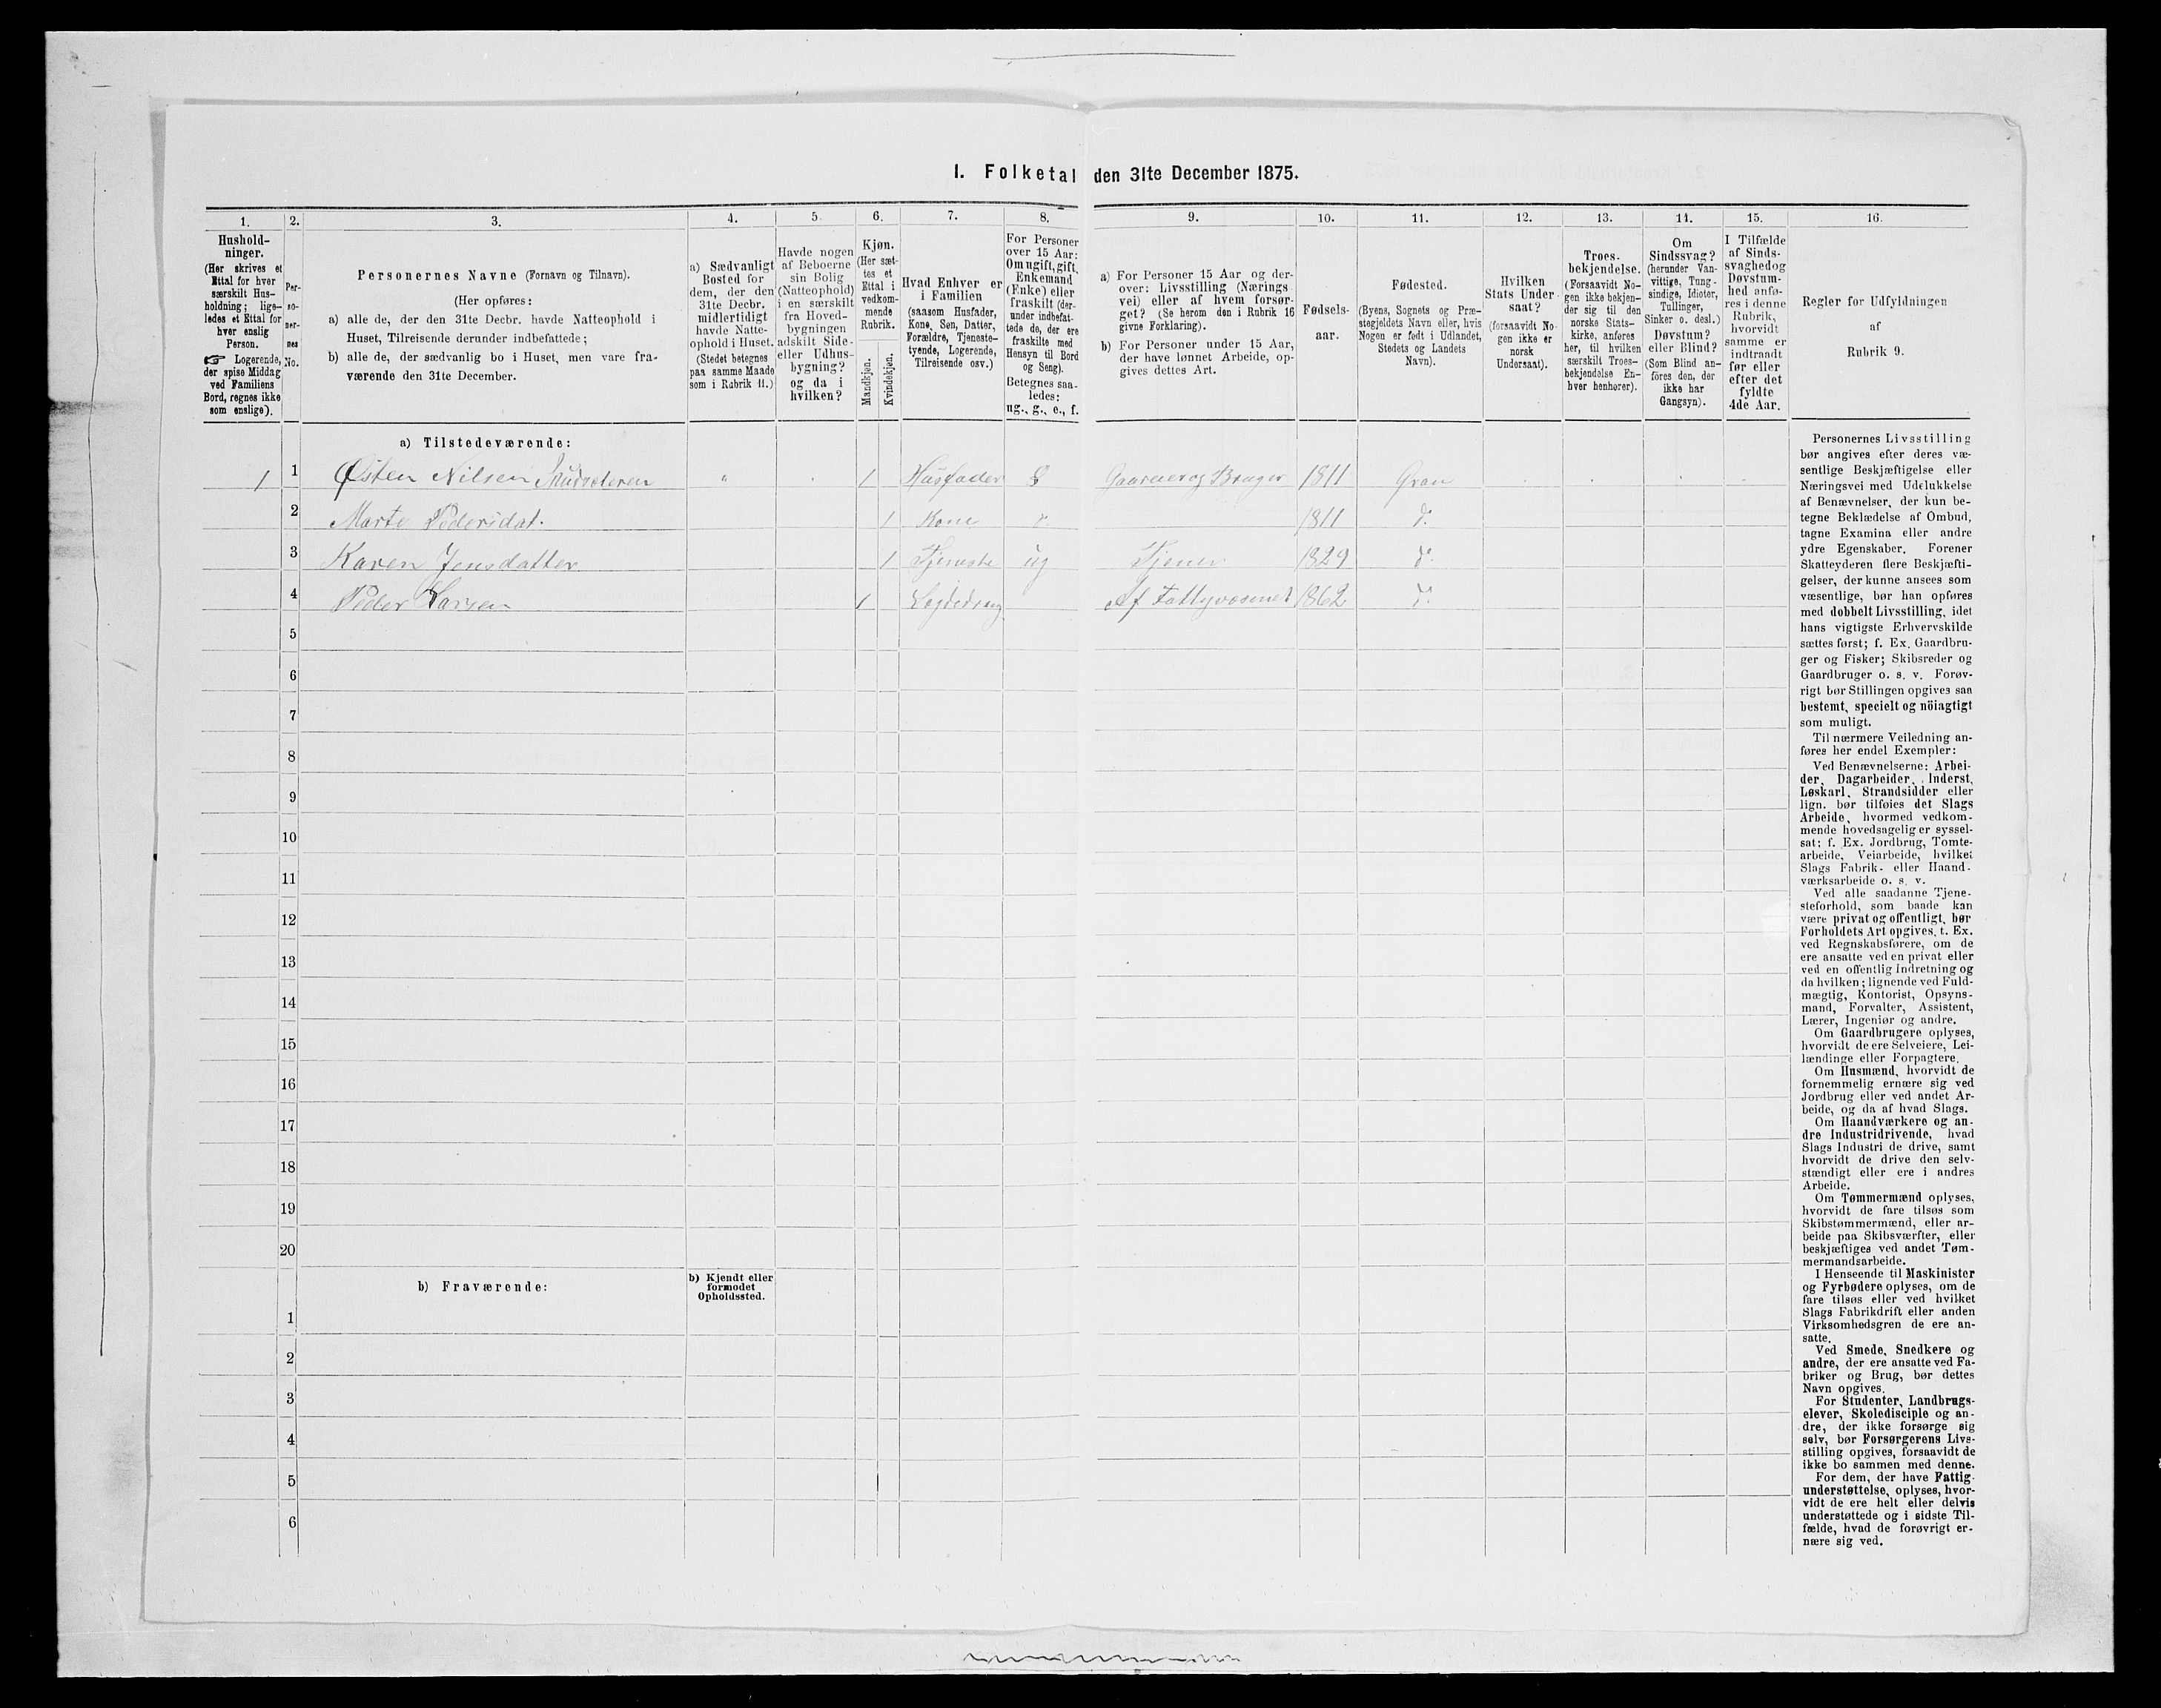 I. Folketal den 31te December 1875.
1.
Hushold-
ninger.
(Her skrives et
Ettal for hver
særskilt Hus-
holdning; lige-
ledes et Ettal for
hver enslig
Person.
☞ Logerende,
der spise Middag
ved Familiens
Bord, regnes ikke
som enslige).
2.
Per-
so-
ner-
nes
No.
3.
Personernes Navne (Fornavn og Tilnavn).
(Her opføres:
a) alle de, der den 31te Decbr. havde Natteophold i
Huset, Tilreisende derunder indbefattede;
b) alle de, der sædvanlig bo i Huset, men vare fra-
værende den 31te December.
4.
a) Sædvanligt
Bosted for
dem, der den
31te Decbr.
midlertidigt
havde Natte-
ophold i Huset.
(Stedet betegnes
paa samme Maade
som i Rubrik 11.)
5.
Havde nogen
af Beboerne
sin Bolig
(Natteophold)
i en særskilt
fra Hoved-
bygningen
adskilt Side-
eller Udhus-
bygning?
og da i
hvilken?
6.
Kjøn.
(Her sæt-
tes et
Ettal i
vedkom-
mende
Rubrik.
Mandkjøn.
Kvindekjøn.
7.
Hvad Enhver er
i Familien
(saasom Husfader,
Kone, Søn, Datter,
Forældre, Tjeneste-
tyende, Logerende,
Tilreisende osv.)
8.
For Personer
over 15 Aar:
Om ugift, gift,
Enkemand
(Enke) eller
fraskilt (der-
under indbefat-
tede de, der ere
fraskilte med
Hensyn til Bord
og Seng).
Betegnes saa-
ledes:
ug., g., e., f.
9.
a) For Personer 15 Aar og der-
over: Livsstilling (Nærings-
vei) eller af hvem forsør-
get? (Se herom den i Rubrik 16
givne Forklaring).
b) For Personer under 15 Aar,
der have lønnet Arbeide, op-
gives dettes Art.
10.
Fødsels-
aar.
11.
Fødested.
(Byens, Sognets og Præ-
stegjeldets Navn eller, hvis
Nogen er født i Udlandet,
Stedets og Landets
Navn).
12.
Hvilken
Stats Under-
saat?
(forsaavidt No-
gen ikke er
norsk
Undersaat).
13.
Troes-
bekjendelse.
(Forsaavidt No-
gen ikke bekjen-
der sig til den
norske Stats-
kirke, anføres
her, til hvilken
særskilt Troes-
bekjendelse En-
hver henhører).
14.
Om
Sindssvag?
(herunder Van-
vittige, Tung-
sindige, Idioter,
Tullinger,
Sinker o. desl.)
Døvstum?
eller Blind?
(Som Blind an-
føres den, der
ikke har
Gangsyn).
15.
I Tilfælde
af Sinds-
svaghed og
Døvstum-
hed anfø-
res i denne
Rubrik,
hvorvidt
samme er
indtraadt
før eller
efter det
fyldte
4de Aar.
16.
Regler for Udfyldningen
af
Rubrik 9.
a) Tilstedeværende:
1 1 Østen Nilsen " 1 Husfader g Gaardeier og Bruger 1811 Gran
2 Marte Pedersdat. 1 Kone d. 1811 do.
3 Karen Jensdatter 1 Tjeneste ug Tjener 1829 do.
4 Peder Larsen 1 Lægdedreng Af Fattigvæsenet 1862 do.
5
6
7
8
9
10
11
12
13
14
15
16
17
18
19
20
b) Fraværende:
b) Kjendt eller
formodet
Opholdssted.
1
2
3
4
5
6
Personernes Livsstilling
bør angives efter deres væ-
sentlige Beskjæftigelse eller
Næringsvei med Udelukkelse
af Benævnelser, der kun be-
tegne Beklædelse af Ombud,
tagne Examina eller andre
ydre Egenskaber. Forener
Skatteyderen flere Beskjæfti-
gelser, der kunne ansees som
væsentlige, bør han opføres
med dobbelt Livsstilling, idet
hans vigtigste Erhvervskilde
sættes først; f. Ex. Gaardbru-
ger og Fisker; Skibsreder og
Gaardbruger o. s. v. Forøv-
rigt bør Stillingen opgives saa
bestemt, specielt og nöiagtigt
som muligt.
Til nærmere Veiledning an-
føres her endel Exempler:
Ved Benævnelserne: Arbei-
der, Dagarbeider, Inderst,
Løskarl, Strandsidder eller
lign. bør tilføies det Slags
Arbeide, hvormed vedkom-
mende hovedsagelig er syssel-
sat; f. Ex. Jordbrug, Tomte-
arbeide, Veiarbeide, hvilket
Slags Fabrik- eller Haand-
værksarbeide o. s. v.
Ved alle saadanne Tjene-
steforhold, som baade kan
være privat og offentligt, bør
Forholdets Art opgives, t. Ex.
ved Regnskabsførere, om de
ere ansatte ved en privat eller
ved en offentlig Indretning og
da hvilken; lignende ved Fuld-
mægtig, Kontorist, Opsyns-
mand, Forvalter, Assistent,
Lærer, Ingeniør og andre.
Om Gaardbrugere oplyses,
hvorvidt de ere Selveiere, Lei-
lændinge eller Forpagtere.
Om Husmænd, hvorvidt de
fornemmelig ernære sig ved
Jordbrug eller ved andet Ar-
beide, og da af hvad Slags.
Om Haandværkere og an-
dre Industridrivende, hvad
Slags Industri de drive, samt
hvorvidt de drive den selv-
stændigt eller ere i andres
Arbeide.
Om Tømmermænd oplyses,
hvorvidt de fare tilsøs som
Skibstømmermænd, eller ar-
beide paa Skibsværfter, eller
beskjæftiges ved andet Tøm-
mermandsarbeide.
I Henseende til Maskinister
og Fyrbødere oplyses, om de
fare tilsøs eller ved hvilket
Slags Fabrikdrift eller anden
Virksomhedsgren de ere an-
satte.
Ved Smede, Snedkere og
andre, der ere ansatte ved Fa-
briker og Brug, bør dettes
Navn opgives.
For Studenter, Landbrugs-
elever, Skoledisciple og an-
dre, der ikke forsørge sig
selv, bør Forsørgerens Livs-
stilling opgives, forsaavidt de
ikke bo sammen med denne.
For dem, der have Fattig-
understøttelse, oplyses, hvor-
vidt de ere helt eller delvis
understøttede og i sidste Til-
fælde, hvad de forøvrigt er-
nære sig ved.